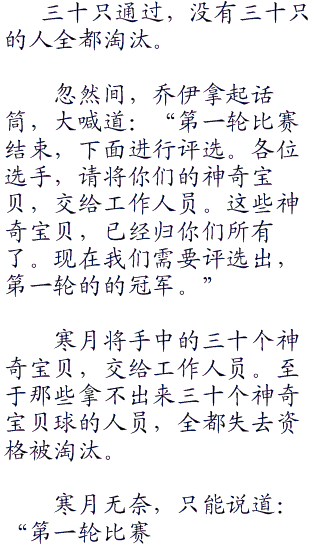 三十只通过，没有三十只
的人全都淘汰。
忽然间，乔伊拿起话
筒，大喊道：“第一轮比赛
结束，下面进行评选。各位
选手，请将你们的神奇宝
贝，交给工作人员。这些神
奇宝贝，已经归你们所有
了。现在我们需要评选出，
第一轮的的冠军。”
寒月将手中的三十个神
奇宝贝，交给工作人员。至
于那些拿不出来三十个神奇
宝贝球的人员，全都失去资
格被淘汰。
寒月无奈，只能说道：
“第一轮比赛